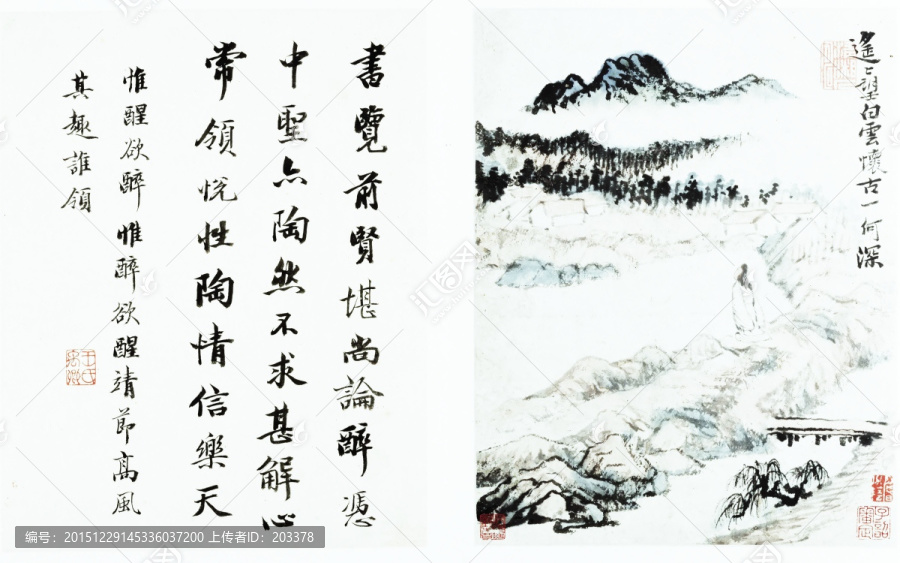 遙〻望白雲懷古一何深
書覽前賢堪尚論醉憑
中聖亦陶然不求甚解心
常領悦性陶情信樂天
惟醒欲醉惟醉欲醒靖節高風
其趣誰領
汇图网
编号：20151229145336037200 上传者ID：203378